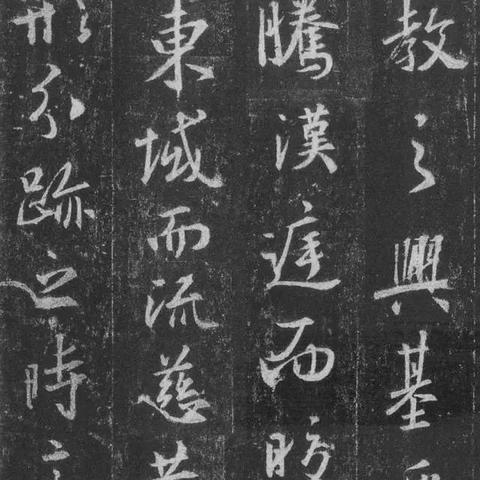 教之興基乎
騰漢庭而皎
東域而流慈昔
形分跡之時言